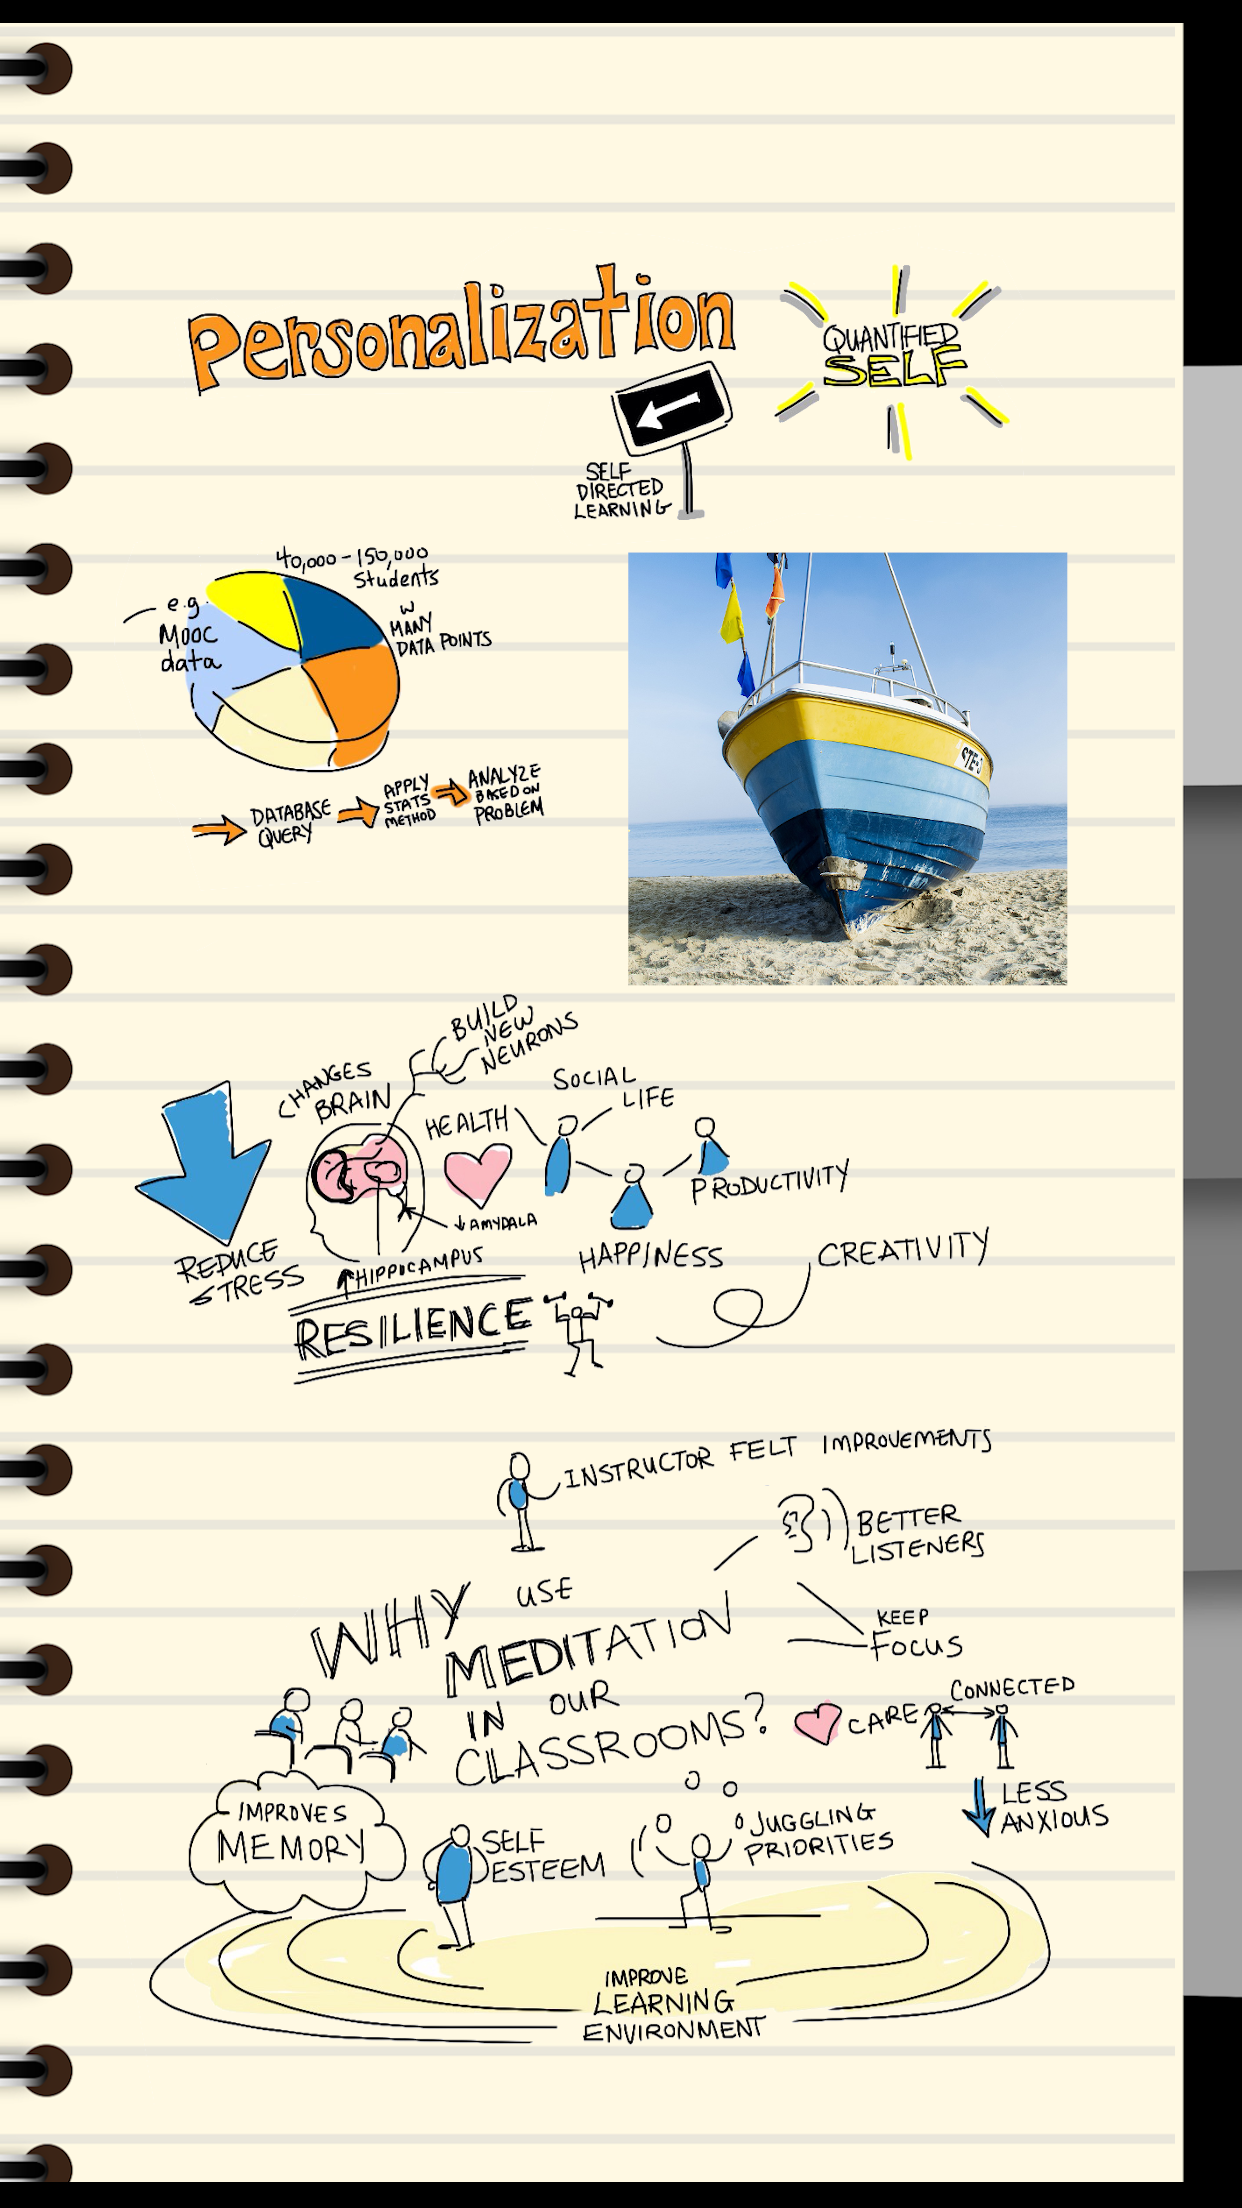 Personalization
QUANTIFIED
SELF
SELF
DIRECTED
LEARNING
40,000-150,000
Students
w
MANY
DATA POINTS
e.g.
MOOC
data
DATABASE
QUERY
APPLY
STATS
METHOD
ANALYZE
BASED ON
PROBLEM
STE-5
BUILD
NEW
NEURONS
CHANGES
BRAIN
HEALTH
SOCIAL
LIFE
PRODUCTIVITY
AMYDALA
HAPPINESS
CREATIVITY
REDUCE
STRESS
HIPPOCAMPUS
RESILIENCE
INSTRUCTOR FELT IMPROVEMENTS
BETTER
LISTENERS
KEEP
FOCUS
WHY USE
MEDITATION
IN OUR
CLASSROOMS?
CARE
CONNECTED
LESS
ANXIOUS
IMPROVES
MEMORY
SELF
ESTEEM
JUGGLING
PRIORITIES
IMPROVE
LEARNING
ENVIRONMENT